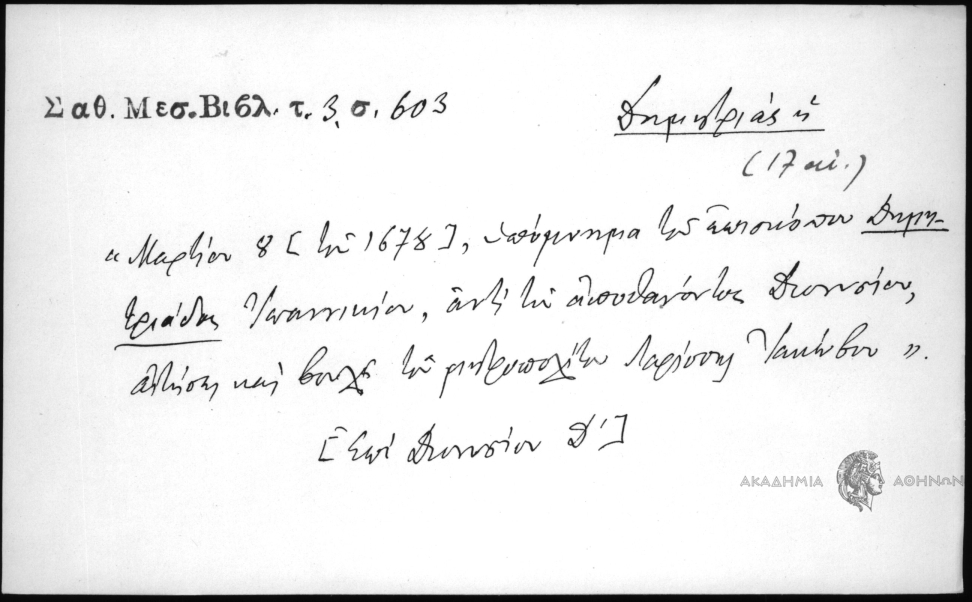 Σαθ. Μεσ. Βιβλ. τ. 3, σ. 603
Δημητριάς ἡ
(17 αἰ.)
« Μαρτίου 8 [τοῦ 1678], ὑπόμνημα τοῦ ἐπισκόπου Δημη-
τριάδος Ἰωαννικίου, ἀντὶ τοῦ ἀποθανόντος Διονυσίου,
αἰτήσει καὶ βουλῇ τοῦ μητροπολίτου Λαρίσσης Ἰακώβου ».
[Ἐπὶ Διονυσίου Δ']
ΑΚΑΔΗΜΙΑ ΑΘΗΝΩΝ